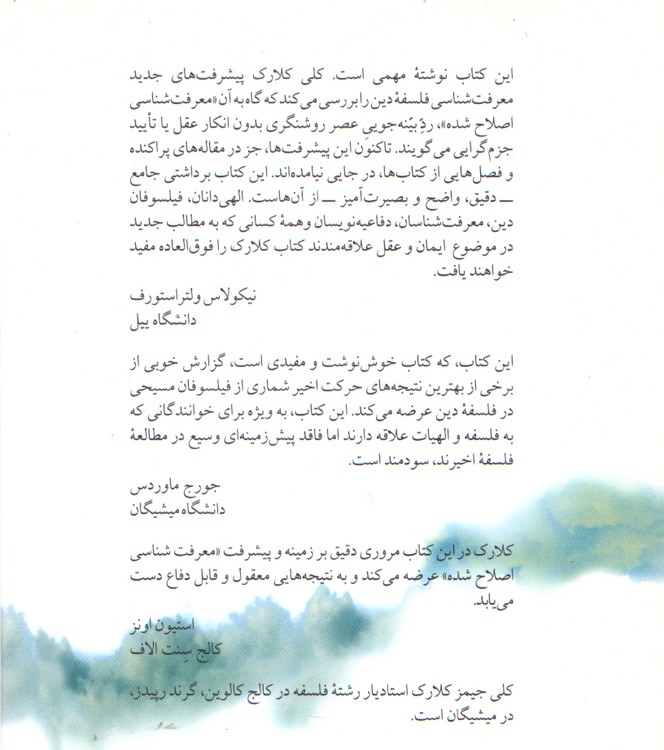 این کتاب نوشتهٔ مهمی است. کلی کلارک پیشرفت‌های جدید
معرفت‌شناسی فلسفهٔ دین را بررسی می‌کند که گاه به آن «معرفت‌شناسی
اصلاح شده»، ردِّ بیّنه‌جوییِ عصر روشنگری بدون انکار عقل یا تأیید
جزم‌گرایی می‌گویند. تاکنون این پیشرفت‌ها، جز در مقاله‌های پراکنده
و فصل‌هایی از کتاب‌ها، در جایی نیامده‌اند. این کتاب برداشتی جامع
ــ دقیق، واضح و بصیرت‌آمیز ــ از آن‌هاست. الهی‌دانان، فیلسوفان
دین، معرفت‌شناسان، دفاعیه‌نویسان و همهٔ کسانی که به مطالب جدید
در موضوع ایمان و عقل علاقه‌مندند کتاب کلارک را فوق‌العاده مفید
خواهند یافت.
نیکولاس ولتراستورف
دانشگاه ییل
این کتاب، که کتاب خوش‌نوشت و مفیدی است، گزارش خوبی از
برخی از بهترین نتیجه‌های حرکت اخیر شماری از فیلسوفان مسیحی
در فلسفهٔ دین عرضه می‌کند. این کتاب، به ویژه برای خوانندگانی که
به فلسفه و الهیات علاقه دارند اما فاقد پیش‌زمینه‌ای وسیع در مطالعهٔ
فلسفهٔ اخیرند، سودمند است.
جورج ماوردس
دانشگاه میشیگان
کلارک در این کتاب مروری دقیق بر زمینه و پیشرفت «معرفت شناسی
اصلاح شده» عرضه می‌کند و به نتیجه‌هایی معقول و قابل دفاع دست
می‌یابد.
استیون اونز
کالج سِنت الاف
کلی جیمز کلارک استادیار رشتهٔ فلسفه در کالج کالوین، گرند رپیدز،
در میشیگان است.